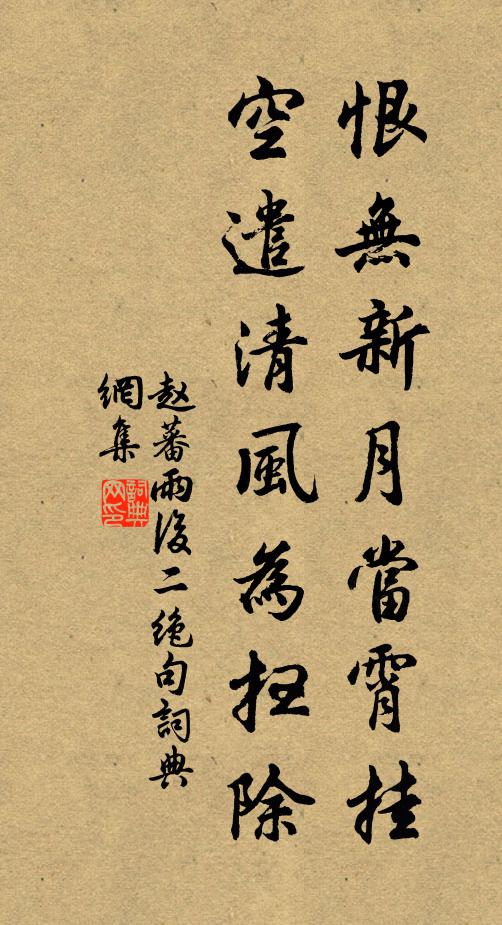 恨無新月當霄挂
空遣清風為扫除
赵蕃雨後二绝句詞典
網集
詞典
网印